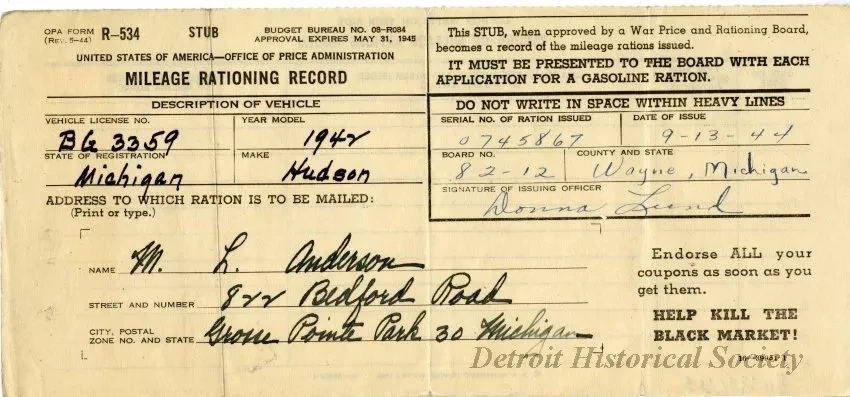 OPA FORM R-534 STUB BUDGET BUREAU NO. 08-R084
(Rev. 5-44) APPROVAL EXPIRES MAY 31, 1945
UNITED STATES OF AMERICA—OFFICE OF PRICE ADMINISTRATION
MILEAGE RATIONING RECORD
DESCRIPTION OF VEHICLE
VEHICLE LICENSE NO. YEAR MODEL
BG 3359 1942
STATE OF REGISTRATION MAKE
Michigan Hudson
ADDRESS TO WHICH RATION IS TO BE MAILED:
(Print or type.)
This STUB, when approved by a War Price and Rationing Board,
becomes a record of the mileage rations issued.
IT MUST BE PRESENTED TO THE BOARD WITH EACH
APPLICATION FOR A GASOLINE RATION.
DO NOT WRITE IN SPACE WITHIN HEAVY LINES
SERIAL NO. OF RATION ISSUED DATE OF ISSUE
0745867 9-13-44
BOARD NO. COUNTY AND STATE
82-12 Wayne, Michigan
SIGNATURE OF ISSUING OFFICER
Donna Lund
NAME M. L. Anderson
STREET AND NUMBER 822 Bedford Road
CITY, POSTAL
ZONE NO. AND STATE Grosse Pointe Park 30 Michigan
Endorse ALL your
coupons as soon as you
get them.
HELP KILL THE
BLACK MARKET!
Detroit Historical Society